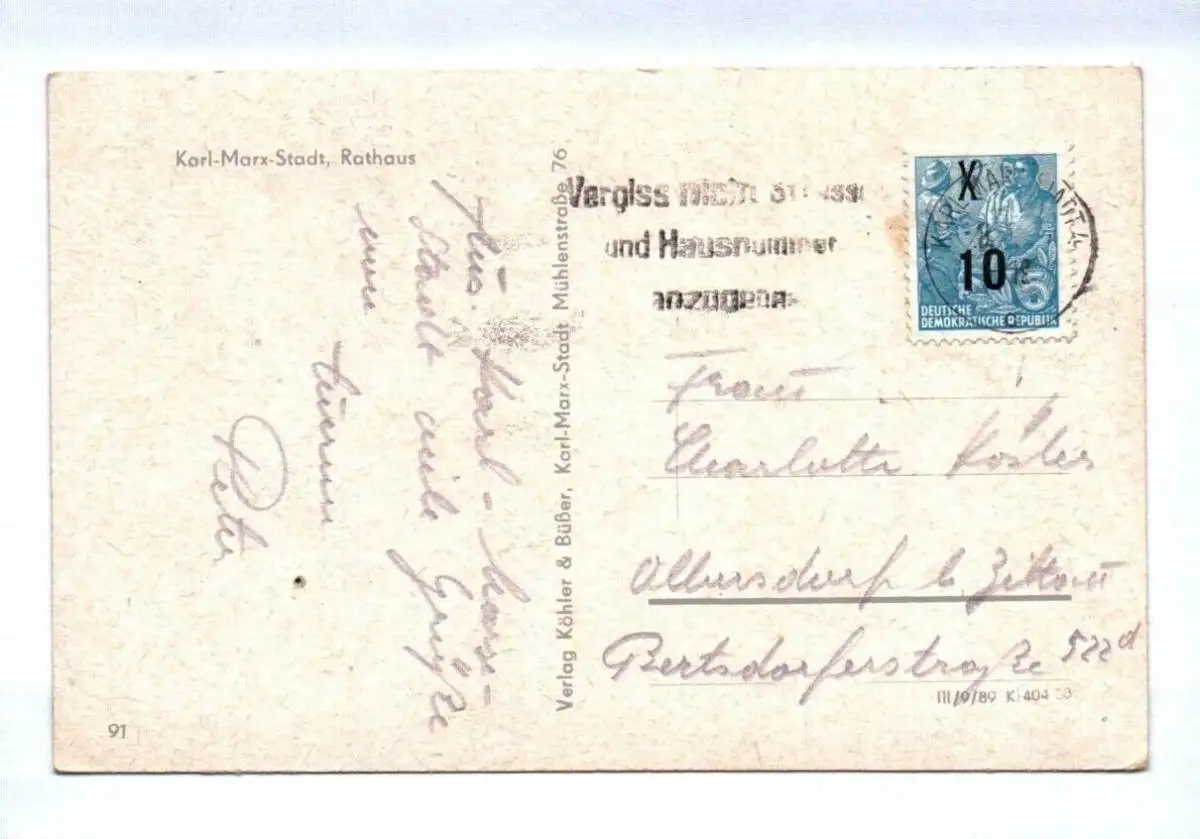 Karl-Marx-Stadt, Rathaus
Aus Karl-Marx-
Stadt viele Grüße
Peter
91
Verlag Köhler & Büßer, Karl-Marx-Stadt Mühlenstraße 76
Vergiss nicht Strasse
und Hausnummer
anzugeben
X
10
5
DEUTSCHE
DEMOKRATISCHE REPUBLIK
KARL-MARX-STADT 4
Frau
Charlotte Köhler
Olbersdorf b. Zittau
Bertsdorferstraße 522d
III/9/89 K 404